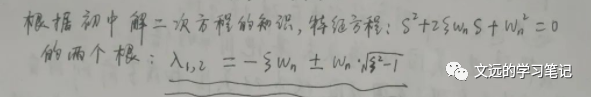 根据初中解二次方程的知识,特征方程:S²+2ξwₙS+wₙ²=0
的两个根:λ₁,₂ = -ξwₙ ± wₙ·√ξ²-1
文远的学习笔记